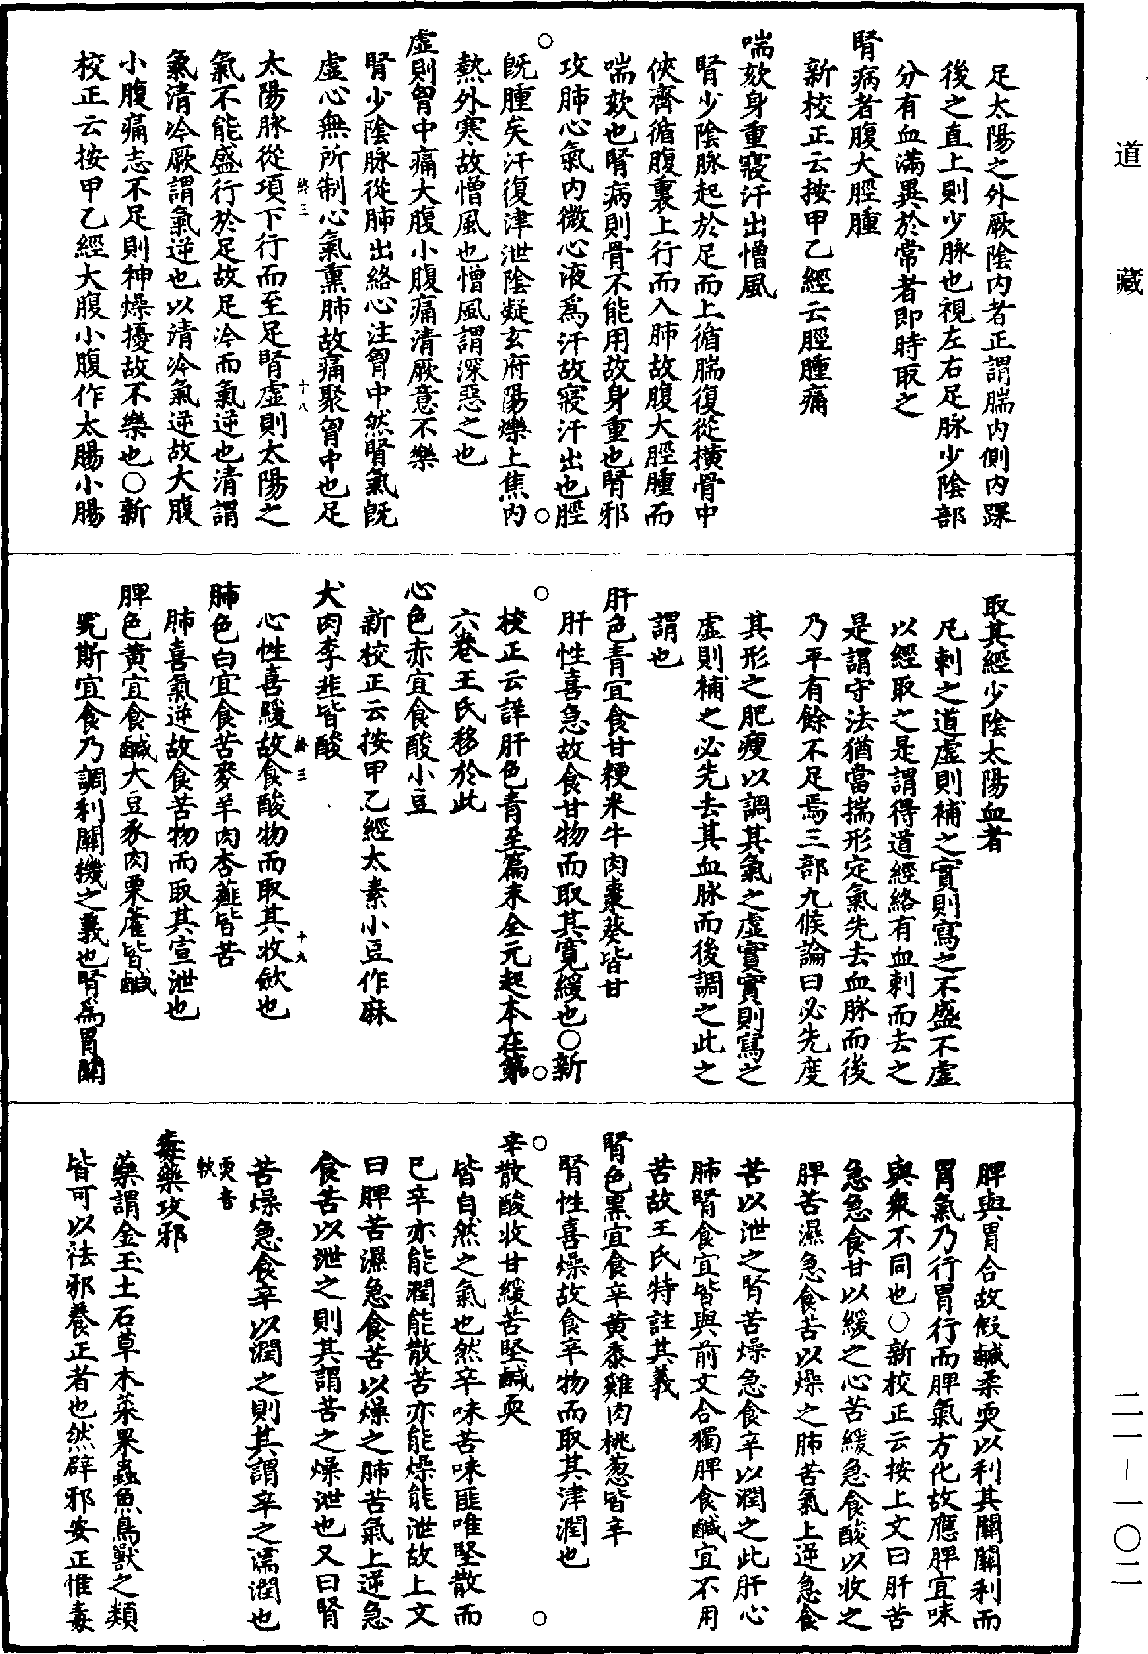 道藏
足太陽之外厥陰內者正謂腨內側內踝
後之直上則少脉也視左右足脉少陰部
分有血滿異於常者即時取之
腎病者腹大脛腫
新校正云按甲乙經云脛腫痛
喘欬身重寢汗出憎風
腎少陰脉起於足而上循腨復從橫骨中
俠齊循腹裏上行而入肺故腹大脛腫而
喘欬也腎病則骨不能用故身重也腎邪
攻肺心氣內微心液爲汗故寢汗出也脛
既腫矣汗復津泄陰凝玄府陽爍上焦內
熱外寒故憎風也憎風謂深惡之也
虛則胷中痛大腹小腹痛清厥意不樂
腎少陰脉從肺出絡心注胷中然腎氣既
虛心無所制心氣熏肺故痛聚胷中也足
太陽脉從項下行而至足腎虛則太陽之
終三 十八
氣不能盛行於足故足冷而氣逆也清謂
氣清冷厥謂氣逆也以清冷氣逆故大腹
小腹痛志不足則神燥擾故不樂也○新
校正云按甲乙經大腹小腹作太腸小腸
取其經少陰太陽血者
凡刺之道虛則補之實則寫之不盛不虛
以經取之是謂得道經絡有血刺而去之
是謂守法猶當揣形定氣先去血脉而後
乃平有餘不足焉三部九候論曰必先度
其形之肥瘦以調其氣之虛實實則寫之
虛則補之必先去其血脉而後調之此之
謂也
肝色青宜食甘粳米牛肉棗葵皆甘
肝性喜急故食甘物而取其寬緩也○新
校正云詳肝色青至篇末全元起本在第
六卷王氏移於此
心色赤宜食酸小豆
新校正云按甲乙經太素小豆作麻
犬肉李韭皆酸
心性喜緩故食酸物而取其收斂也
終三 十九
肺色白宜食苦麥羊肉杏薤皆苦
肺喜氣逆故食苦物而取其宣泄也
脾色黃宜食鹹大豆豕肉栗藿皆鹹
究斯宜食乃調利關機之義也腎爲胃關
脾與胃合故假鹹柔耎以利其關關利而
胃氣乃行胃行而脾氣方化故應脾宜味
與衆不同也○新校正云按上文曰肝苦
急急食甘以緩之心苦緩急食酸以收之
脾苦濕急食苦以燥之肺苦氣上逆急食
苦以泄之腎苦燥急食辛以潤之此肝心
肺腎食宜皆與前文合獨脾食鹹宜不用
苦故王氏特註其義
腎色黑宜食辛黃黍雞肉桃葱皆辛
腎性喜燥故食辛物而取其津潤也
辛散酸收甘緩苦堅鹹耎
皆自然之氣也然辛味苦味匪唯堅散而
已辛亦能潤能散苦亦能燥能泄故上文
曰脾苦濕急食苦以燥之肺苦氣上逆急
食苦以泄之則其謂苦之燥泄也又曰腎
苦燥急食辛以潤之則其謂辛之濡潤也
耎音
軟
毒藥攻邪
藥謂金玉土石草木菜果蟲魚鳥獸之類
皆可以祛邪養正者也然辟邪安正惟毒
二一－一〇二